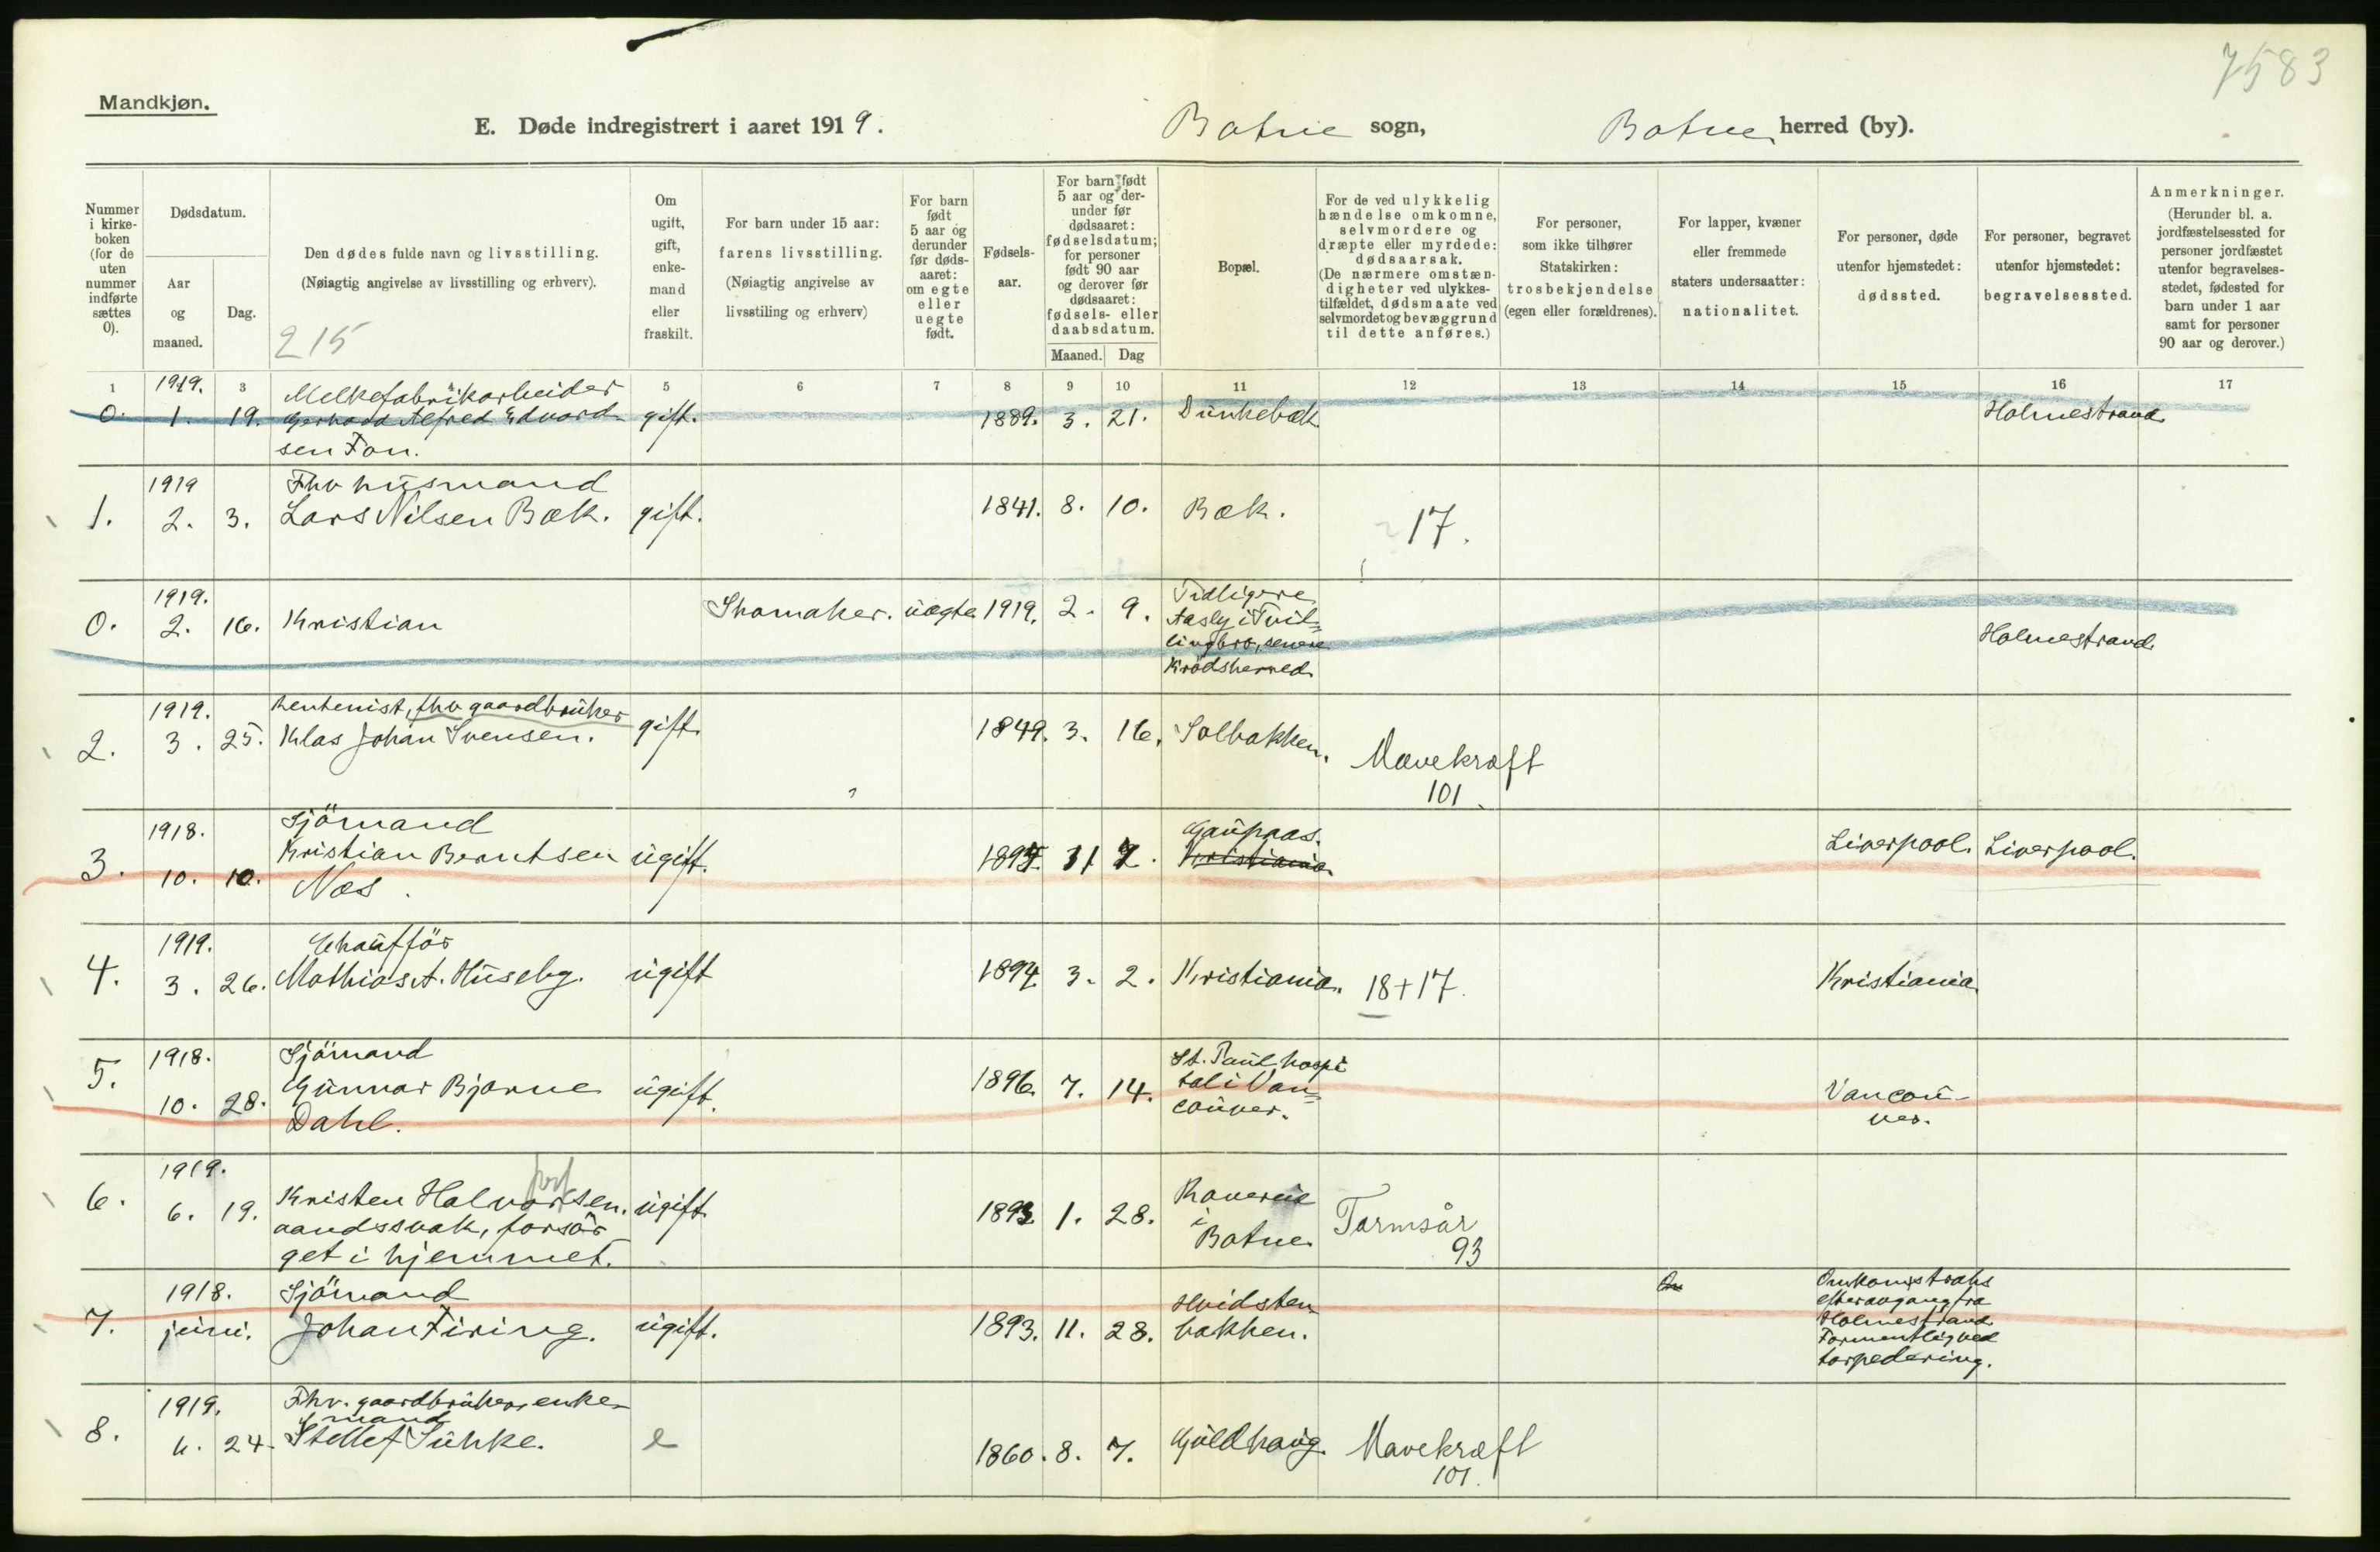 7583
Mandkjøn.
E. Døde indregistrert i aaret 1919.
Botne sogn,
Botne herred (by).
Nummer
i kirke-
boken
(for de
uten
nummer
indførte
sættes
0).
Dødsdatum.
Aar
og
maaned.
Dag.
Den dødes fulde navn og livsstilling.
(Nøiagtig angivelse av livsstilling og erhverv).
215
Om
ugift,
gift,
enke-
mand
eller
fraskilt.
For barn under 15 aar:
farens livsstilling.
(Nøiagtig angivelse av
livsstiling og erhverv)
For barn
født
5 aar og
derunder
før døds-
aaret:
om egte
eller
uegte
født.
Fødsels-
aar.
For barn født
5 aar og der-
under før
dødsaaret:
fødselsdatum;
for personer
født 90 aar
og derover før
dødsaaret:
fødsels- eller
daabsdatum.
Maaned. Dag
Bopæl.
For de ved ulykkelig
hændelse omkomne,
selvmordere og
dræpte eller myrdede:
dødsaarsak.
(De nærmere omstæn-
digheter ved ulykkes-
tilfældet, dødsmaate ved
selvmordet og bevæggrund
til dette anføres.)
For personer,
som ikke tilhører
Statskirken:
trosbekjendelse
(egen eller forældrenes).
For lapper, kvæner
eller fremmede
staters undersaatter:
nationalitet.
For personer, døde
utenfor hjemstedet:
dødssted.
For personer, begravet
utenfor hjemstedet:
begravelsessted.
Anmerkninger.
(Herunder bl. a.
jordfæstelsessted for
personer jordfæstet
utenfor begravelses-
stedet, fødested for
barn under 1 aar
samt for personer
90 aar og derover.)
1 3 5 6 7 8 9 10 11 12 13 14 15 16 17
1919. Melkefabrikarbeider
0. 1. 19. Gerhard Alfred Edvard- gift. 1889. 3. 21. Dunkebæk Holmestrand.
sen Fon.
1919 Fhv husmand
1. 2. 3. Lars Nilsen Bæk. gift. 1841. 8. 10. Bæk. 17.
1919. Tidligere
0. 2. 16. Kristian Skomaker. uægte 1919. 2. 9. Aasly i Tvil=
lingbro, senere Holmestrand.
Krødsherred.
1919. Rentenist, fhv gaardbruker
2. 3. 25. Klas Johan Svensen. gift. 1849. 3. 16. Solbakken. Mavekræft
101.
1918. Sjömand Gaupaas.
3. 10. 10. Kristian Berntsen ugift. 1894. 11 7. Kristiania. Liverpool. Liverpool.
Næs.
1919. Chaufför
4. 3. 26. Mathias A. Huseby. ugift 1894. 3. 2. Kristiania. 18+17. Kristiania.
1918. Sjömand St. Paul hospi
5. 10. 28. Gunnar Bjarne ugift. 1896. 7. 14. tal i Van= Vancou-
Dahl. couver. ver.
1919.
6. 6. 19. Kristen Halvorsen. ugift. 1893. 1. 28. i Tarmsår
aandssvak, forsør Botne. 93
get i hjemmet.
1918. Sjömand Hvidsten Omkom straks
7. juni. Johan Firing. ugift. 1893. 11. 28. bakken. efter avgang fra
Holmestrand.
Formentlig ved
torpedering.
1919. Fhv. gaardbruker, enke-
mand
8. 24. Suhke. e 1860. 8. 7. Guldhaug. Mavekræft
101.